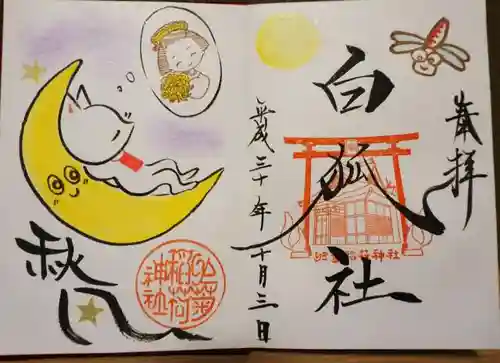 奉拝
白狐社
於菊稲荷神社
平成三十年十月三日
秋
於菊
稲荷
神社